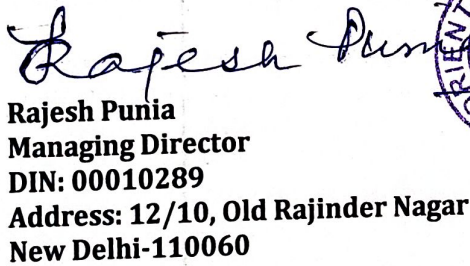 Rajesh Punia
ORIENT
Rajesh Punia
Managing Director
DIN: 00010289
Address: 12/10, Old Rajinder Nagar
New Delhi-110060